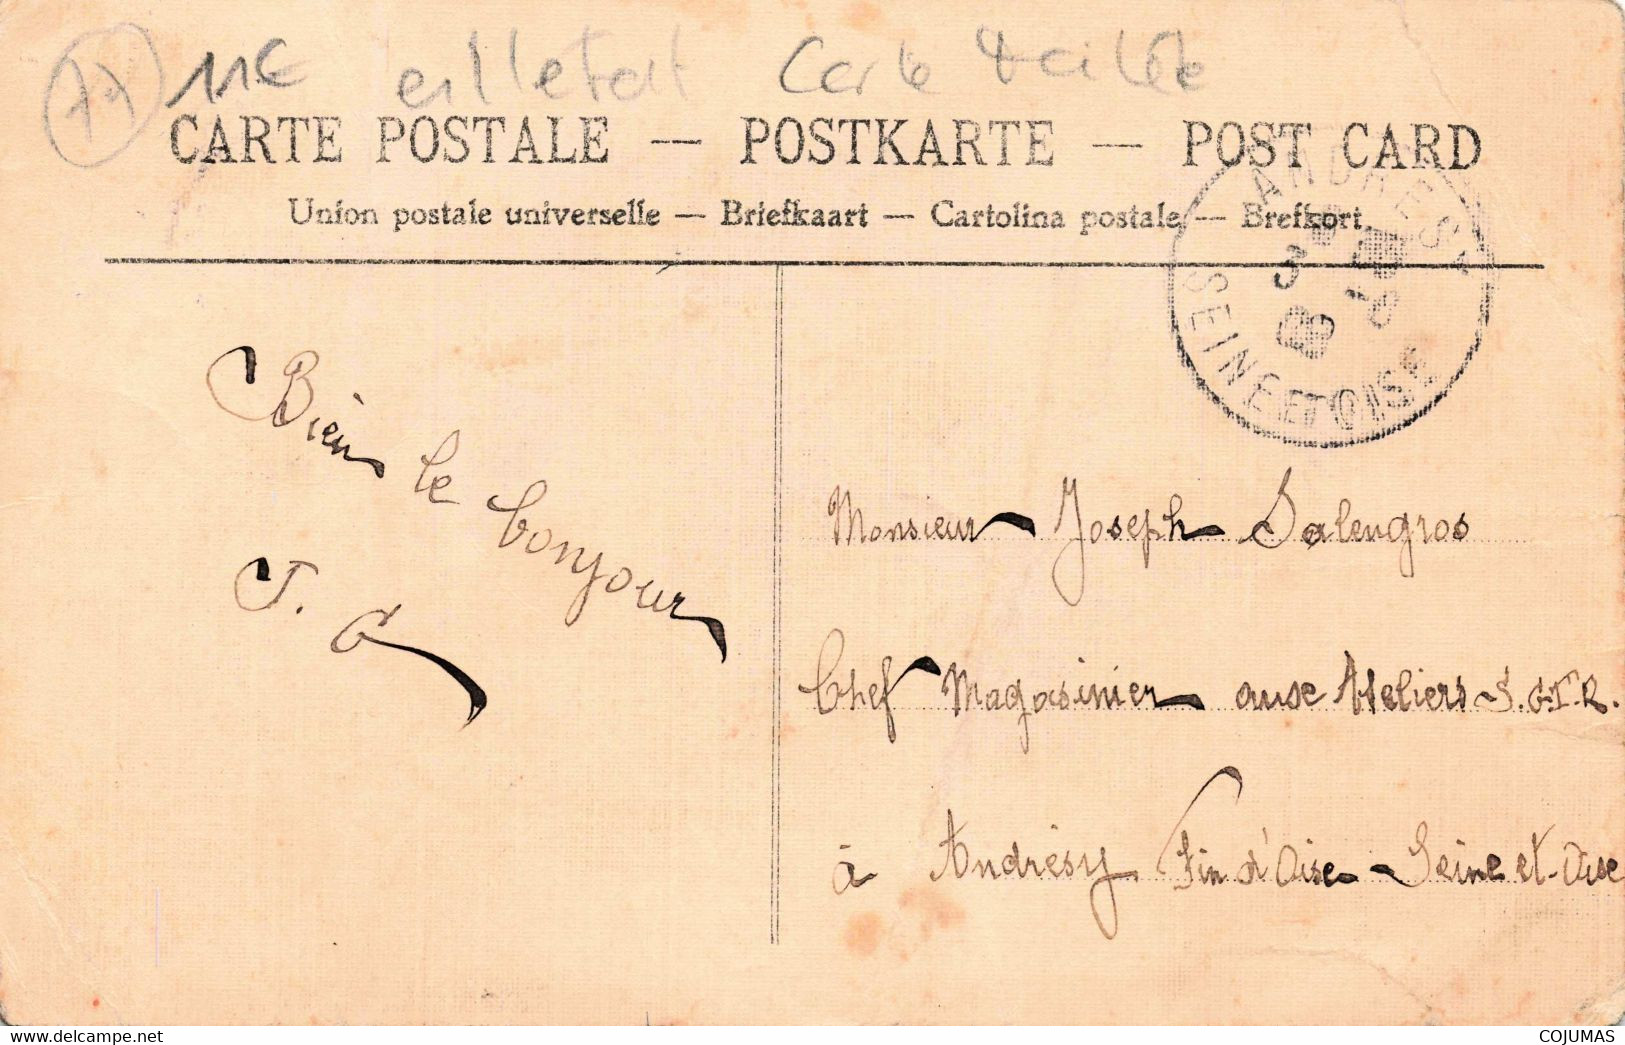 77 11€ Carte
CARTE POSTALE — POSTKARTE — POST CARD
Union postale universelle — Briefkaart — Cartolina postale — Brefkort
ANDRESY
SEINE ET OISE
Bien le bonjour
J. G
Monsieur Joseph Salengros
Chef Magasinier aux Ateliers S.G.T.R.
à Andrésy Fin d'Oise - Seine et-Oise
www.delcampe.net
COJUMAS